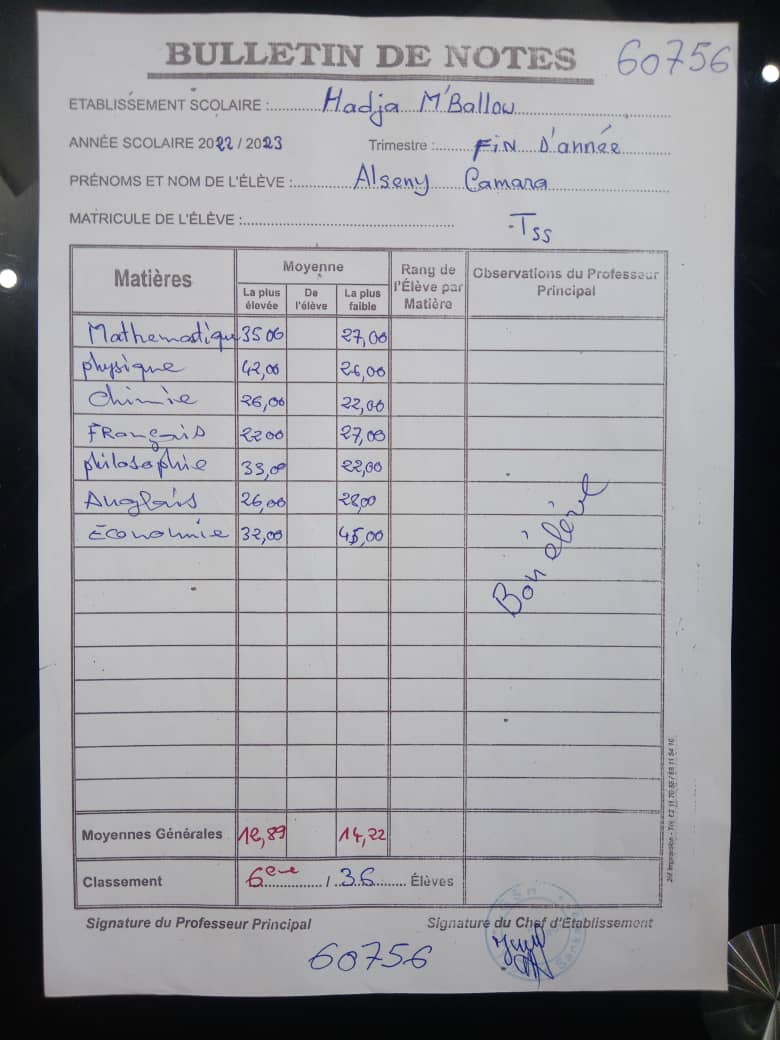 BULLETIN DE NOTES 60756
ETABLISSEMENT SCOLAIRE : Hadja M'Ballou
ANNÉE SCOLAIRE 2022 / 2023 Trimestre : FiN D'année
PRÉNOMS ET NOM DE L'ÉLÈVE : Alseny Camara
MATRICULE DE L'ÉLÈVE : Tss
Matières Moyenne Rang de l'Élève par Matière Observations du Professeur Principal
La plus élevée De l'élève La plus faible
Mathematique 35 00 27,00
physique 42,00 26,00
Chimie 26,00 22,00
FRançais 22 00 27,00
philosophie 33,00 22,00
Anglais 26,00 28,00
Economie 32,00 45,00
Bon élève
Moyennes Générales 12,89 14,22
Classement 6eme / 36 Élèves
Signature du Professeur Principal Signature du Chef d'Etablissement
60756